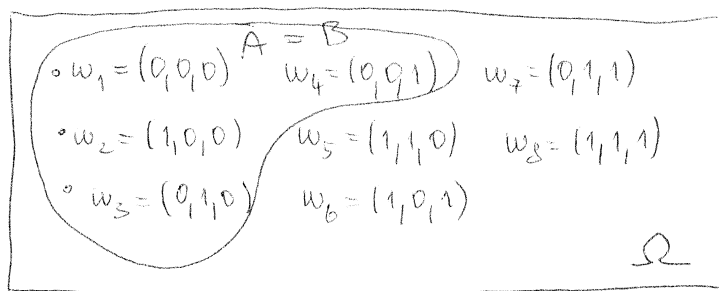 A = B
ω₁ = (0,0,0) ω₄ = (0,0,1) ω₇ = (0,1,1)
ω₂ = (1,0,0) ω₅ = (1,1,0) ω₈ = (1,1,1)
ω₃ = (0,1,0) ω₆ = (1,0,1)
Ω